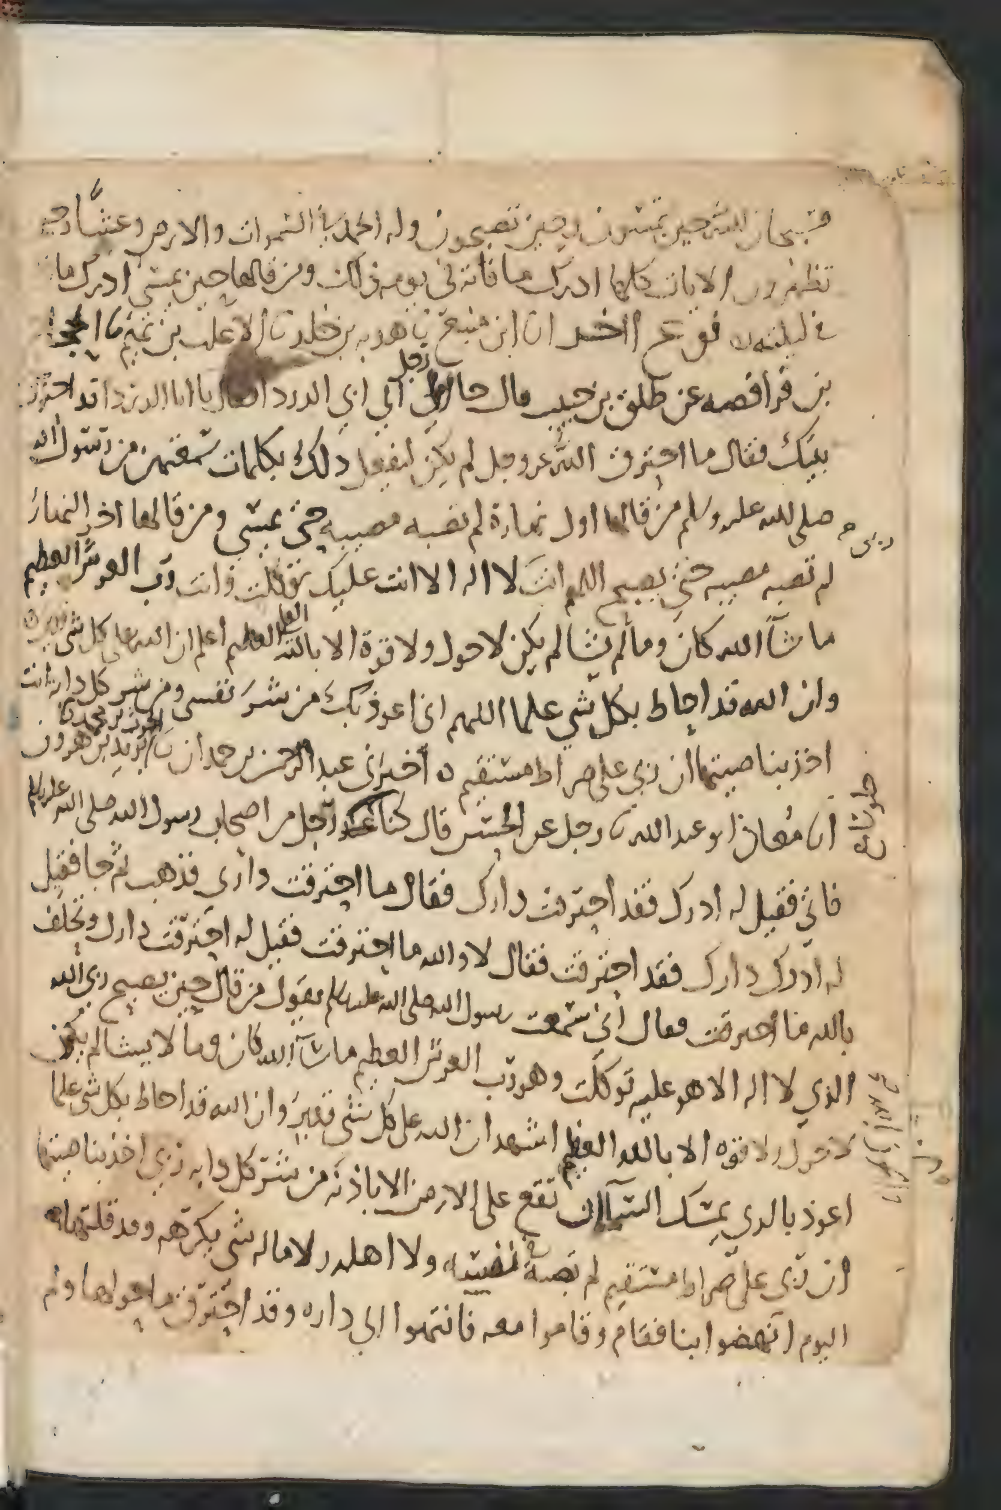 فسبحان الله حين تمسون وحين تصبحون وله الحمد في السموات والارض وعشيا وحين
تظهرون الايات كلها ادرك ما فاته في يومه ذلك ومن قالها حين يمسي ادرك ما
في ليلته نوع اخر انا ابن منيع نا هدبه بن خلد نا الاغلب بن تميم نا الحجاج
بن فرافصه عن طلق بن حبيب قال جا رجل الى ابي الدردا فقال يا ابا الدردا قد احترق
بيتك فقال ما احترق الله عز وجل لم يكن ليفعل ذلك بكلمات سمعتهن من رسول الله
صلى الله عليه وسلم من قالها اول نهاره لم تصبه مصيبه حتى يمسي ومن قالها اخر النهار
لم تصبه مصيبه حتى يصبح اللهم انت ربي لا اله الا انت عليك توكلت وانت رب العرش العظيم
ما شآ الله كان وما لم يشا لم يكن لا حول ولا قوة الا بالله العلي العظيم اعلم ان الله على كل شي قدير
وان الله قد احاط بكل شي علما اللهم اني اعوذ بك من شر نفسي ومن شر كل دابه انت
اخذ بناصيتها ان ربي على صراط مستقيم ه اخبرني عبد الرحمن بن حمدان نا الحرث بن محمد نا يزيد بن هرون
انا معاذ ابو عبد الله نا رجل عن الحسن قال كنا عند رجل من اصحاب رسول الله صلى الله عليه وسلم
فاتي فقيل له ادرك فقد احترقت دارك فقال ما احترقت داري فذهب ثم جا فقيل
له ادرك دارك فقد احترقت فقال لا والله ما احترقت فقيل له احترقت دارك وتحلف
بالله ما احترقت فقال اني سمعت رسول الله صلى الله عليه وسلم يقول من قال حين يصبح ربي الله
الذي لا اله الا هو عليه توكلت وهو رب العرش العظيم ما شآ الله كان وما لا يشا لم يكن
لا حول ولا قوه الا بالله العظيم اشهد ان الله على كل شي قدير وان الله قد احاط بكل شي علما
اعوذ بالذي يمسك السمآ ان تقع على الارض الا باذنه من شر كل دابه ربي اخذ بناصيتها
ان ربي على صراط مستقيم لم تصبه في نفسه ولا اهله ولا ماله شي يكرهه وقد قلتها
اليوم انهضوا بنا فقام وقاموا معه فانتهوا الى داره وقد احترق ما حولها ولم